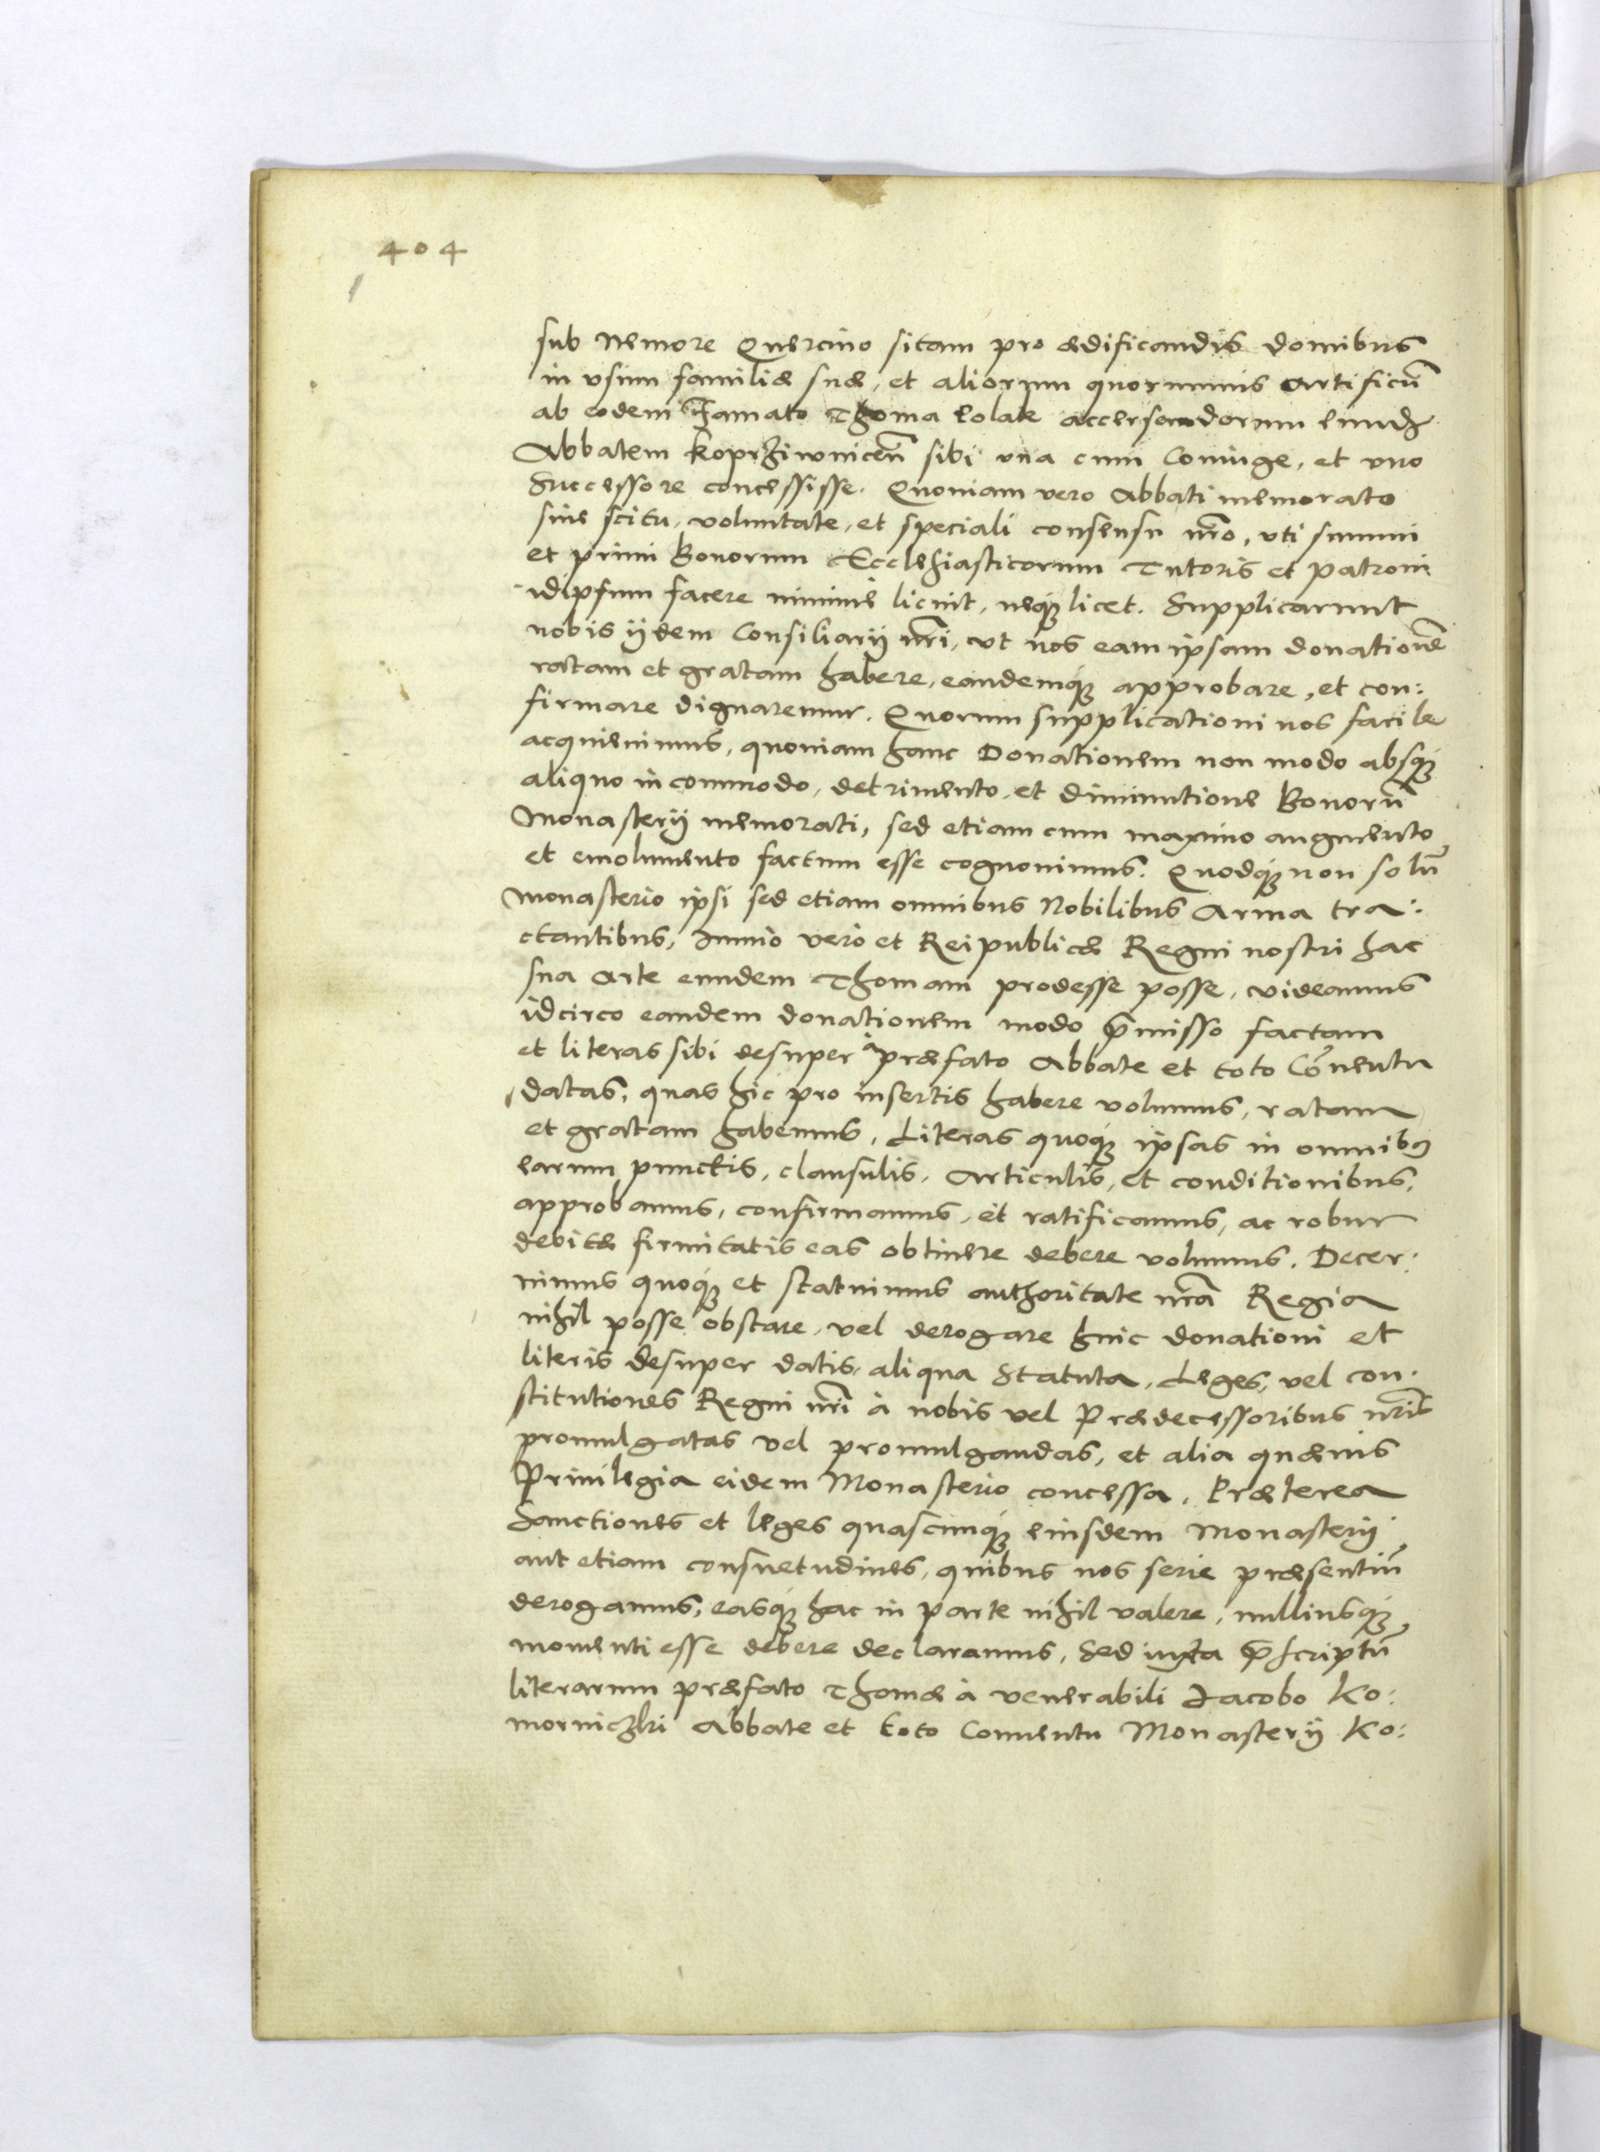 404
sub nemore Quercino sitam pro ædificandis domibus
in vsum familiæ suæ, et aliorum quorumuis artificũ
ab eodem Famato Thoma Colak accersendorum eundẽ
Abbatem Koprziwnicen̄ sibi vna cum Coniuge, et vno
Successore concessisse. Quoniam vero Abbati memorato
sine scitu, voluntate, et speciali consensu nr̄o, vti summi
et primi Bonorum Ecclesiasticorum Tutoris et patroni
idipsum facere minimè licuit, neq́ licet. Supplicarunt
nobis ijdem Consiliarij nr̄i, vt nos eam ipsam donationẽ
ratam et gratam habere, eandemq́ approbare, et con:
firmare dignaremur. Quorum supplicationi nos facile
acquieuimus, quoniam hanc Donationem non modo absq́
aliquo incommodo, detrimento, et diminutione Bonorũ
Monasterij memorati, sed etiam cum maximo augmento
et emolumento factum esse cognouimus. Quodq́ non solũ
monasterio ipsi sed etiam omnibus Nobilibus Arma tra:
ctantibus, Immò verò et Reipublicæ Regni nostri hac
sua Arte eundem Thomam prodesse posse, videamus
idcirco eandem donationem modo p̄misso factam
et literas sibi desuper à præfato Abbate et toto Cõuentu
datas, quas hic pro insertis habere volumus, ratam
et gratam habemus, Literas quoq́ ipsas in omnibꝫ
earum punctis, clausulis, Articulis, et conditionibus,
approbamus, confirmamus, et ratificamus, ac robur
debitæ firmitatis eas obtinere debere volumus. Decer:
nimus quoq́ et statuimus authoritate nr̄a Regia
nihil posse obstare, vel derogare huic donationi et
literis desuper datis, aliqua Statuta, Leges, vel con:
stitutiones Regni nr̄i à nobis vel Prædecessoribus nr̄is
promulgatas vel promulgandas, et alia quæuis
Priuilegia eidem Monasterio concessa. Præterea
Sanctiones et leges quascunq́ eiusdem Monasterij
aut etiam consuetudines, quibus nos serie præsentiũ
derogamus, easq́ hac in parte nihil valere, nulliusq́
momenti esse debere declaramus, Sed iuxta p̄scriptũ
literarum præfato Thomæ à venerabili Jacobo Ko:
morniczki Abbate et toto Conuentu Monasterij Ko: